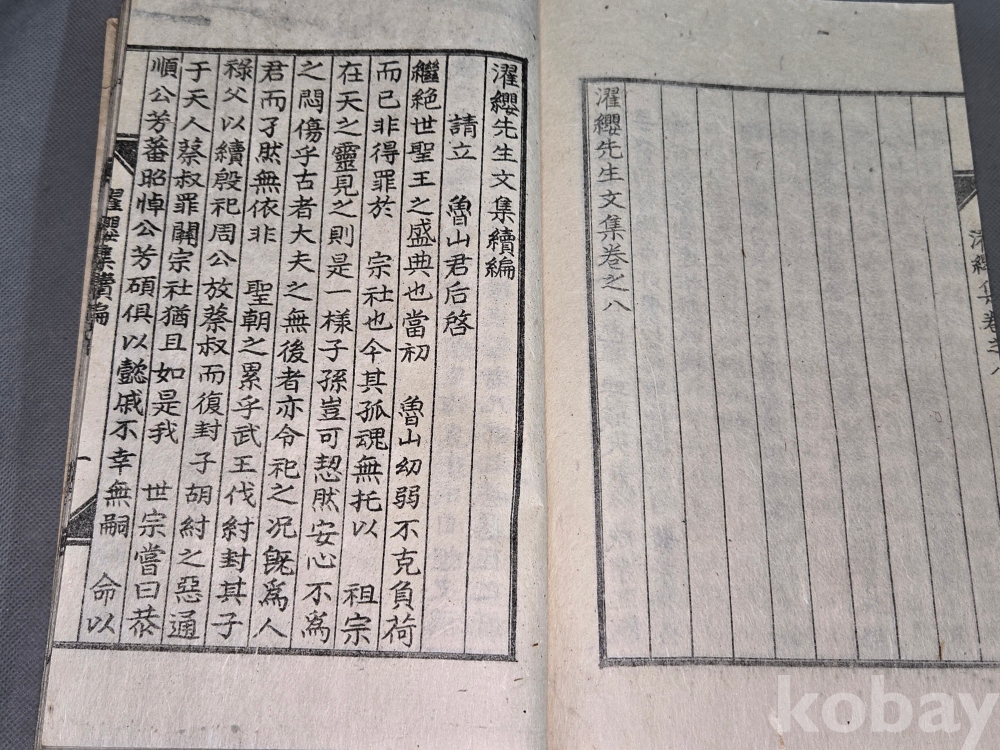 濯纓先生文集卷之八
濯纓集卷之八
濯纓先生文集續編
請立 魯山君后啓
繼絶世聖王之盛典也當初 魯山幼弱不克負荷
而已非得罪於 宗社也今其孤魂無托以 祖宗
在天之靈見之則是一樣子孫豈可恝然安心不爲
之悶傷乎古者大夫之無後者亦令祀之况旣爲人
君而孑然無依非 聖朝之累乎武王伐紂封其子
祿父以續殷祀周公放蔡叔而復封子胡紂之惡通
于天人蔡叔罪關宗社猶且如是我 世宗嘗曰恭
順公芳蕃昭悼公芳碩俱以懿戚不幸無嗣 命以
濯纓集續編
一
kobay